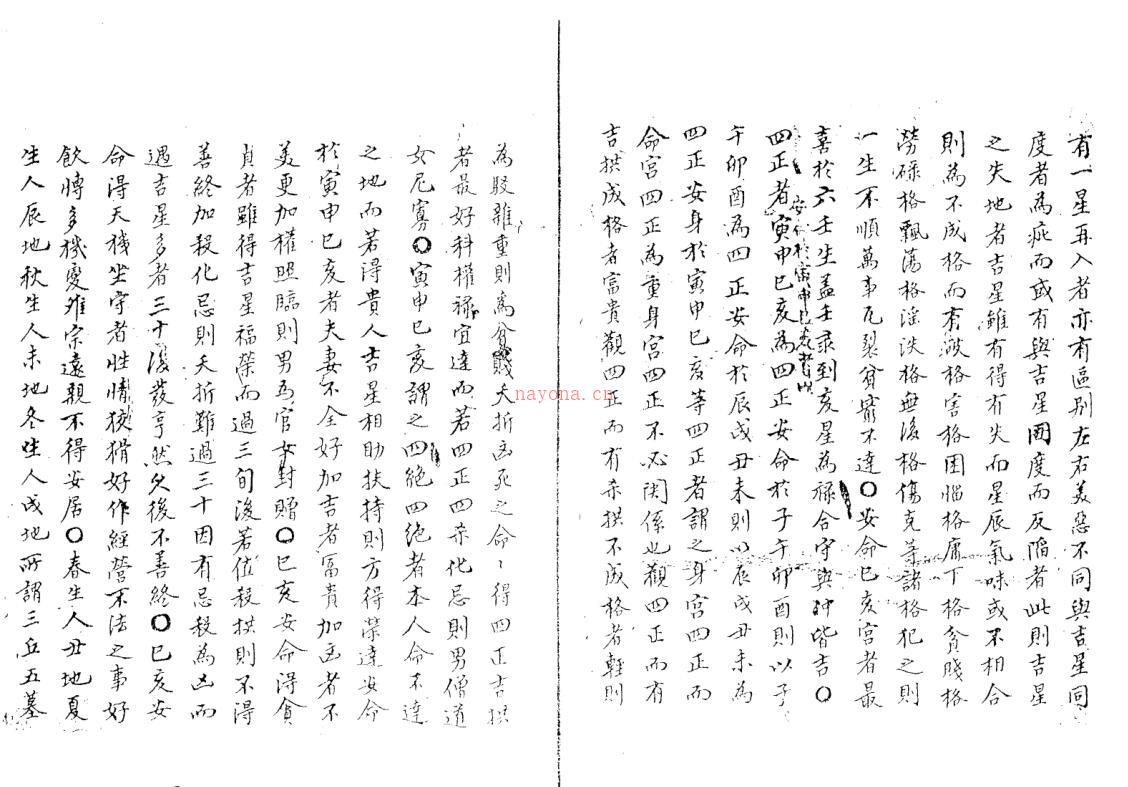 有一星再入者亦有區别左右美惡不同與吉星同
度者為疵而或有與吉星同度而反陷者此則吉星
之失地者吉星雖有得有失而星辰氣味或不相合
則為不成格而有破格害格困惱格庸下格貪賤格
勞碌格飄蕩格淫泆格無後格傷克等諸格犯之則
一生不順萬事瓦裂貧窮不達〇安命巳亥宮者最
喜於六壬生盖壬录到亥星為禄合守與冲皆吉〇
四正者寅申巳亥為四正安命於子午卯酉則以子
安命於寅申巳亥者以
午卯酉為四正安命於辰戌丑未則以辰戌丑未為
四正安身於寅申巳亥等四正者謂之身宮四正而
命宮四正為重身宮四正不必関係也觀四正而有
吉拱成格者富貴觀四正而有杀拱不成格者輕則
為駁雜重則為貧賤夭折凶死之命〻得四正吉拱
者最好科權禄宜達而若四正四杀化忌則男僧道
女尼寡〇寅申巳亥謂之四絶四絶者本人命不達
之地而若得貴人吉星相助扶持則方得荣達安命
於寅申巳亥者夫妻不全好加吉者冨貴加凶者不
美更加權照臨則男為官女對贈〇巳亥安命得貪
貞者雖得吉星福荣而過三旬後若位殺拱則不得
善終加殺化忌則夭折難過三十因有忌殺為凶而
遇吉星多者三十後發亨然久後不善終〇巳亥安
命得天機坐守者性情狡猾好作經营不法之事好
飲博多機變难宗遠親不得安居〇春生人丑地夏
生人辰地秋生人未地冬生人戌地所謂三丘五墓
nayona.cn